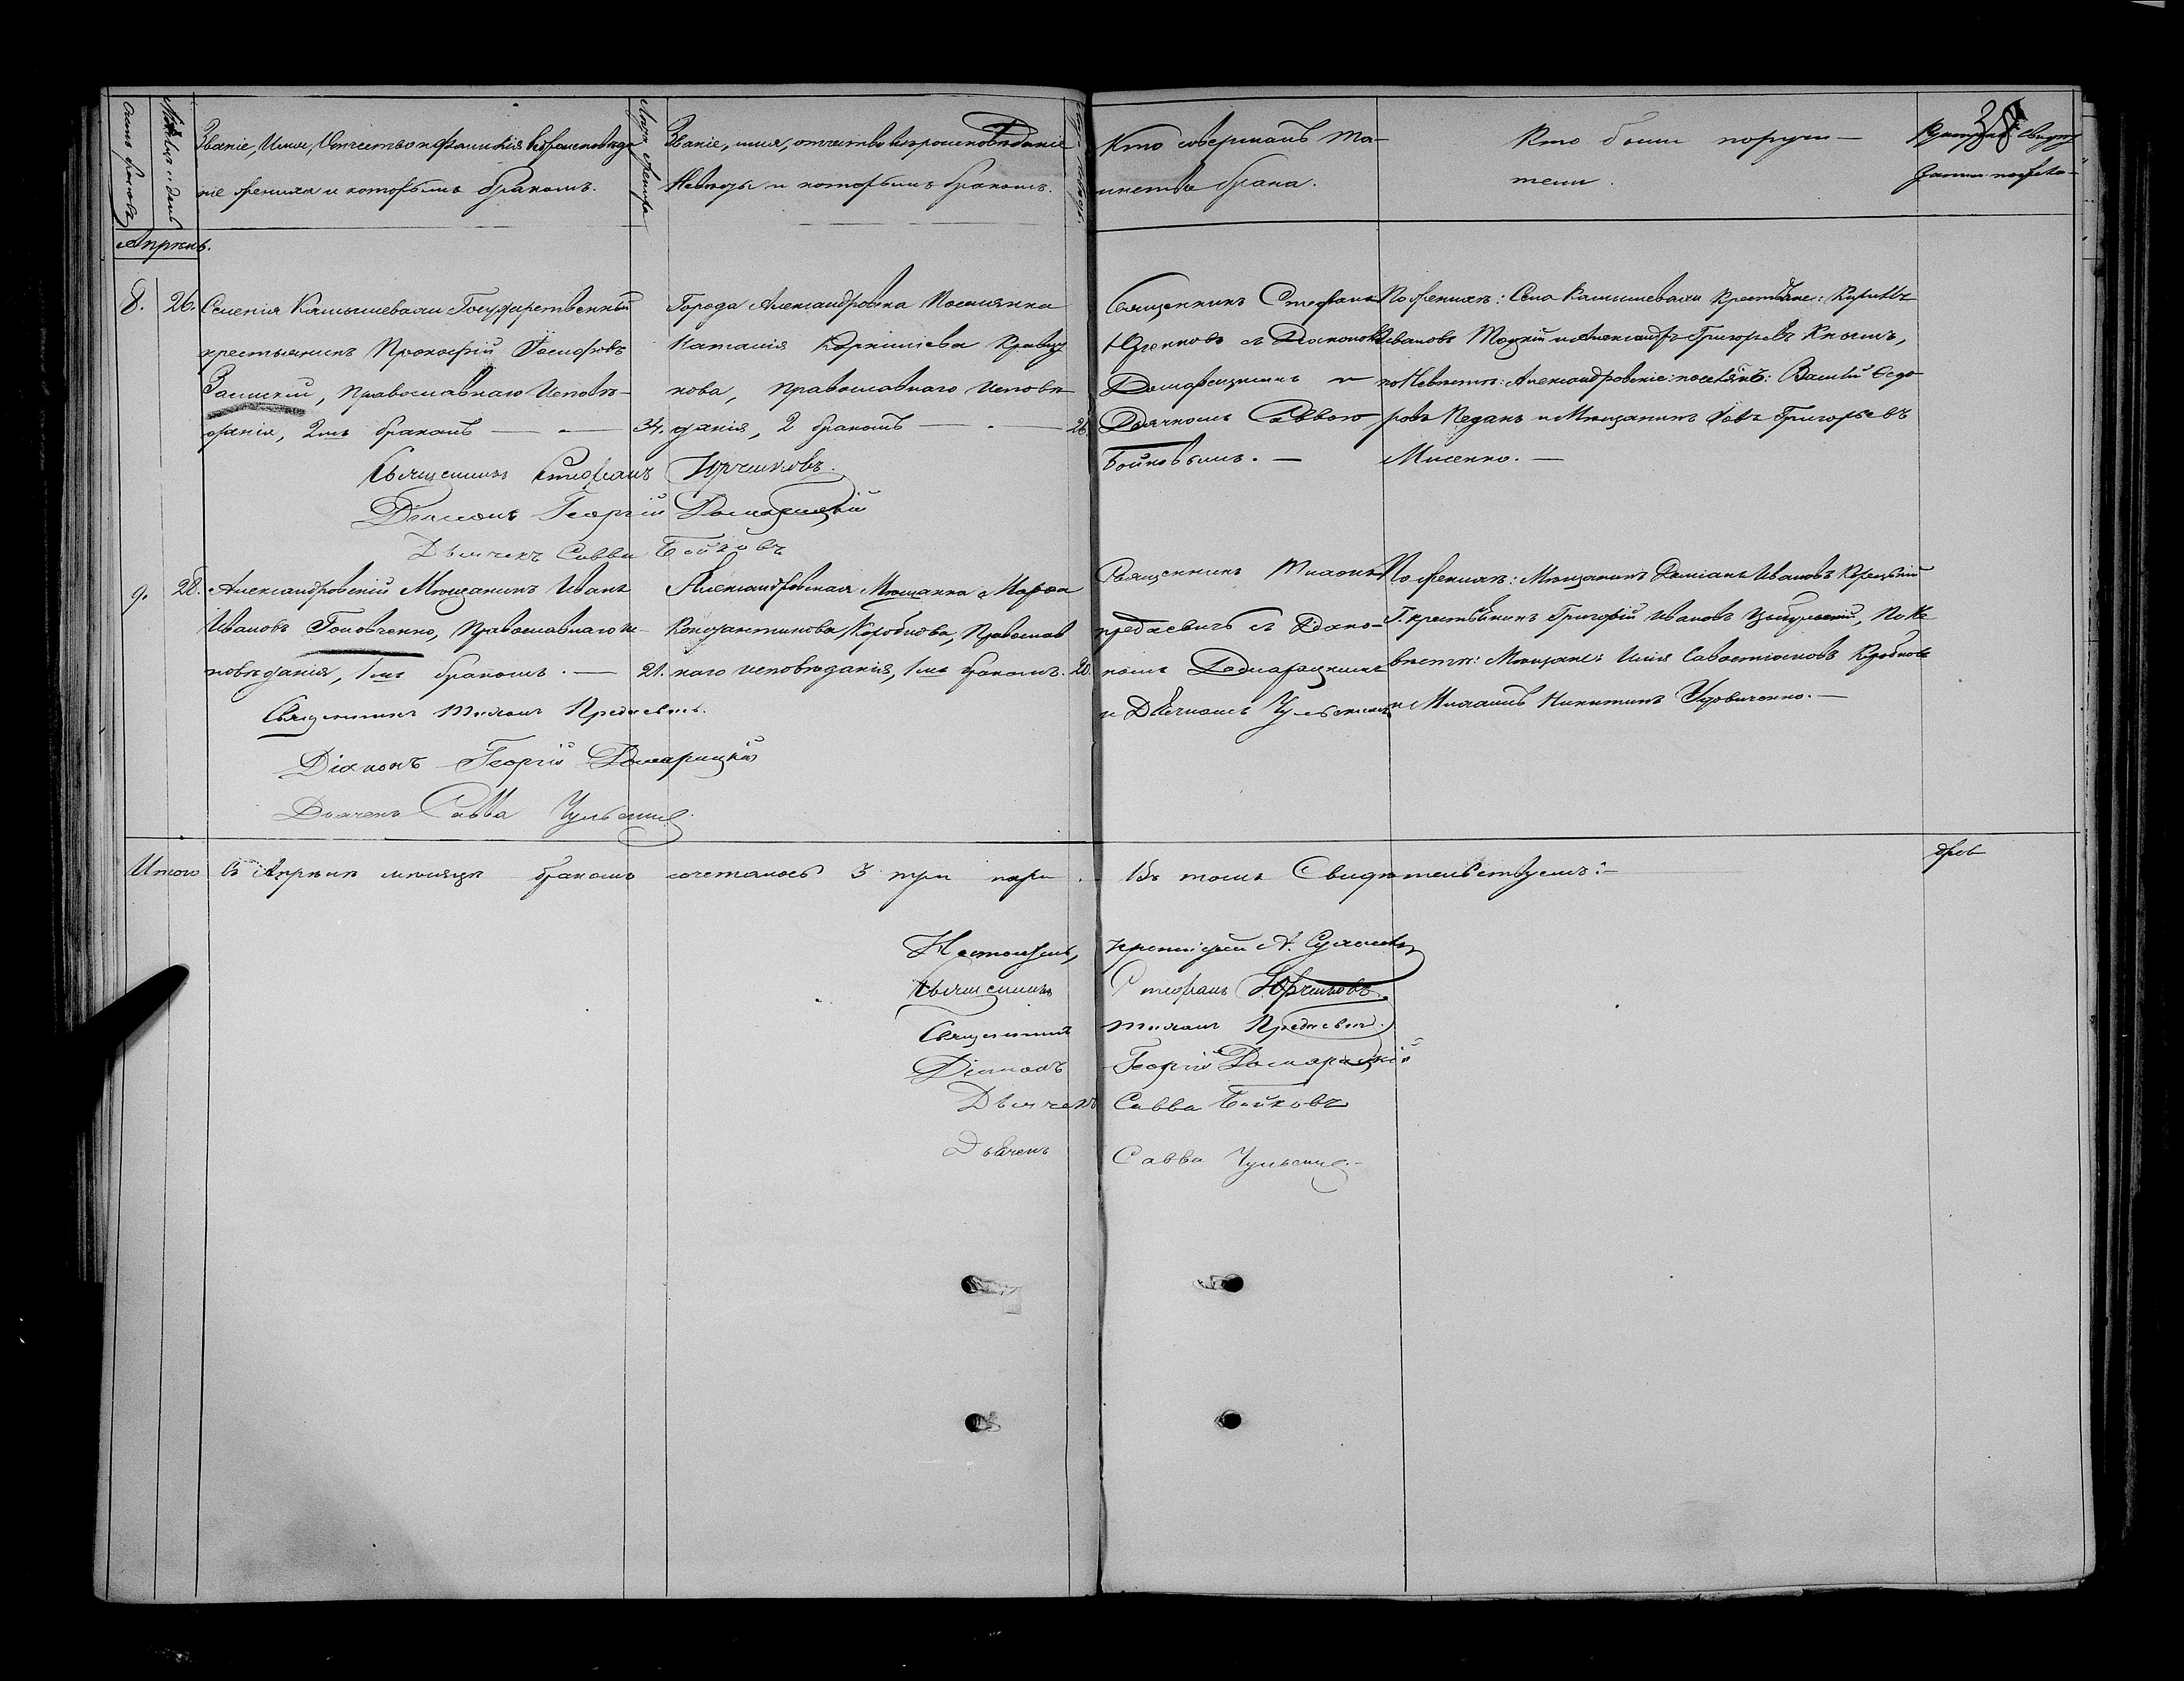 Счетъ браковъ
Мѣсяцъ и день
Званіе, Имя, Отчество и фамилія вѣроисповѣда
ніе жениха и которымъ бракомъ.
Лѣта жениха
Званіе, имя, отчество вѣроисповѣданіе
Невѣсты и которымъ бракомъ.
Кто совершалъ Та-
инство брака.
Кто были поручи-
тели.
Апрѣль.
8. 26. Селенія Камышевахи Государственный
крестьянинъ Прокофій Іосифовъ
Залискій, Православнаго Исповѣ-
данія, 2мъ бракомъ 34.
Города Александровка Поселянка
Наталія Корнилиева Кравцу
нова, православнаго исповѣ
данія, 2 бракомъ 26.
Священникъ Стефанъ
Юрченковъ съ Діакономъ
Домарацкимъ и
Дьячкомъ Саввою
Бойковымъ.
По женихѣ: Села Камышевахи Крестьяне: Кириллъ
Ивановъ Тоцкій и Александръ Григорьевъ Кнышъ,
по Невѣстѣ: Александровскіе: поселянъ: Василій Ѳедо
ровъ Педанъ и Мѣщанинъ Іовъ Григорьевъ
Мисенко.
Священникъ Стефанъ Юрченковъ.
Діаконъ Георгій Домарацкій
Дьячекъ Савва Бойковъ
9. 28. Александровскій Мѣщанинъ Иванъ
Ивановъ Головченко, Православнаго ис-
повѣданія, 1мъ бракомъ. 21.
Александровская Мѣщанка Марѳа
Константинова Коробкова, Православ
наго исповѣданія, 1мъ бракомъ. 20.
Священникъ Тихонъ
Предаевичъ съ Діако-
номъ Домарацкимъ
и Дьячкомъ
По женихѣ: Мѣщанинъ Даміанъ Ивановъ Корецкій
Г. крестьянинъ Григорій Ивановъ Цыбульскій, По Не
вѣстѣ: Мѣщане: Илія Савастіановъ Коробковъ
и Михаилъ Никитинъ Удовиченко.
Священникъ Тихонъ Предаевичъ.
Діаконъ Георгій Домарацкій
Дьячекъ Савва
Итого въ Апрѣлѣ мѣсяцѣ бракомъ сочеталось 3 три пары. Въ томъ Свидѣтельствуемъ:
Настоятель, протоіерей А.
Священникъ Стефанъ Юрченковъ.
Священникъ Тихонъ Предаевичъ.
Діаконъ Георгій Домарацкій
Дьячекъ Савва Бойковъ
Дьячекъ Савва